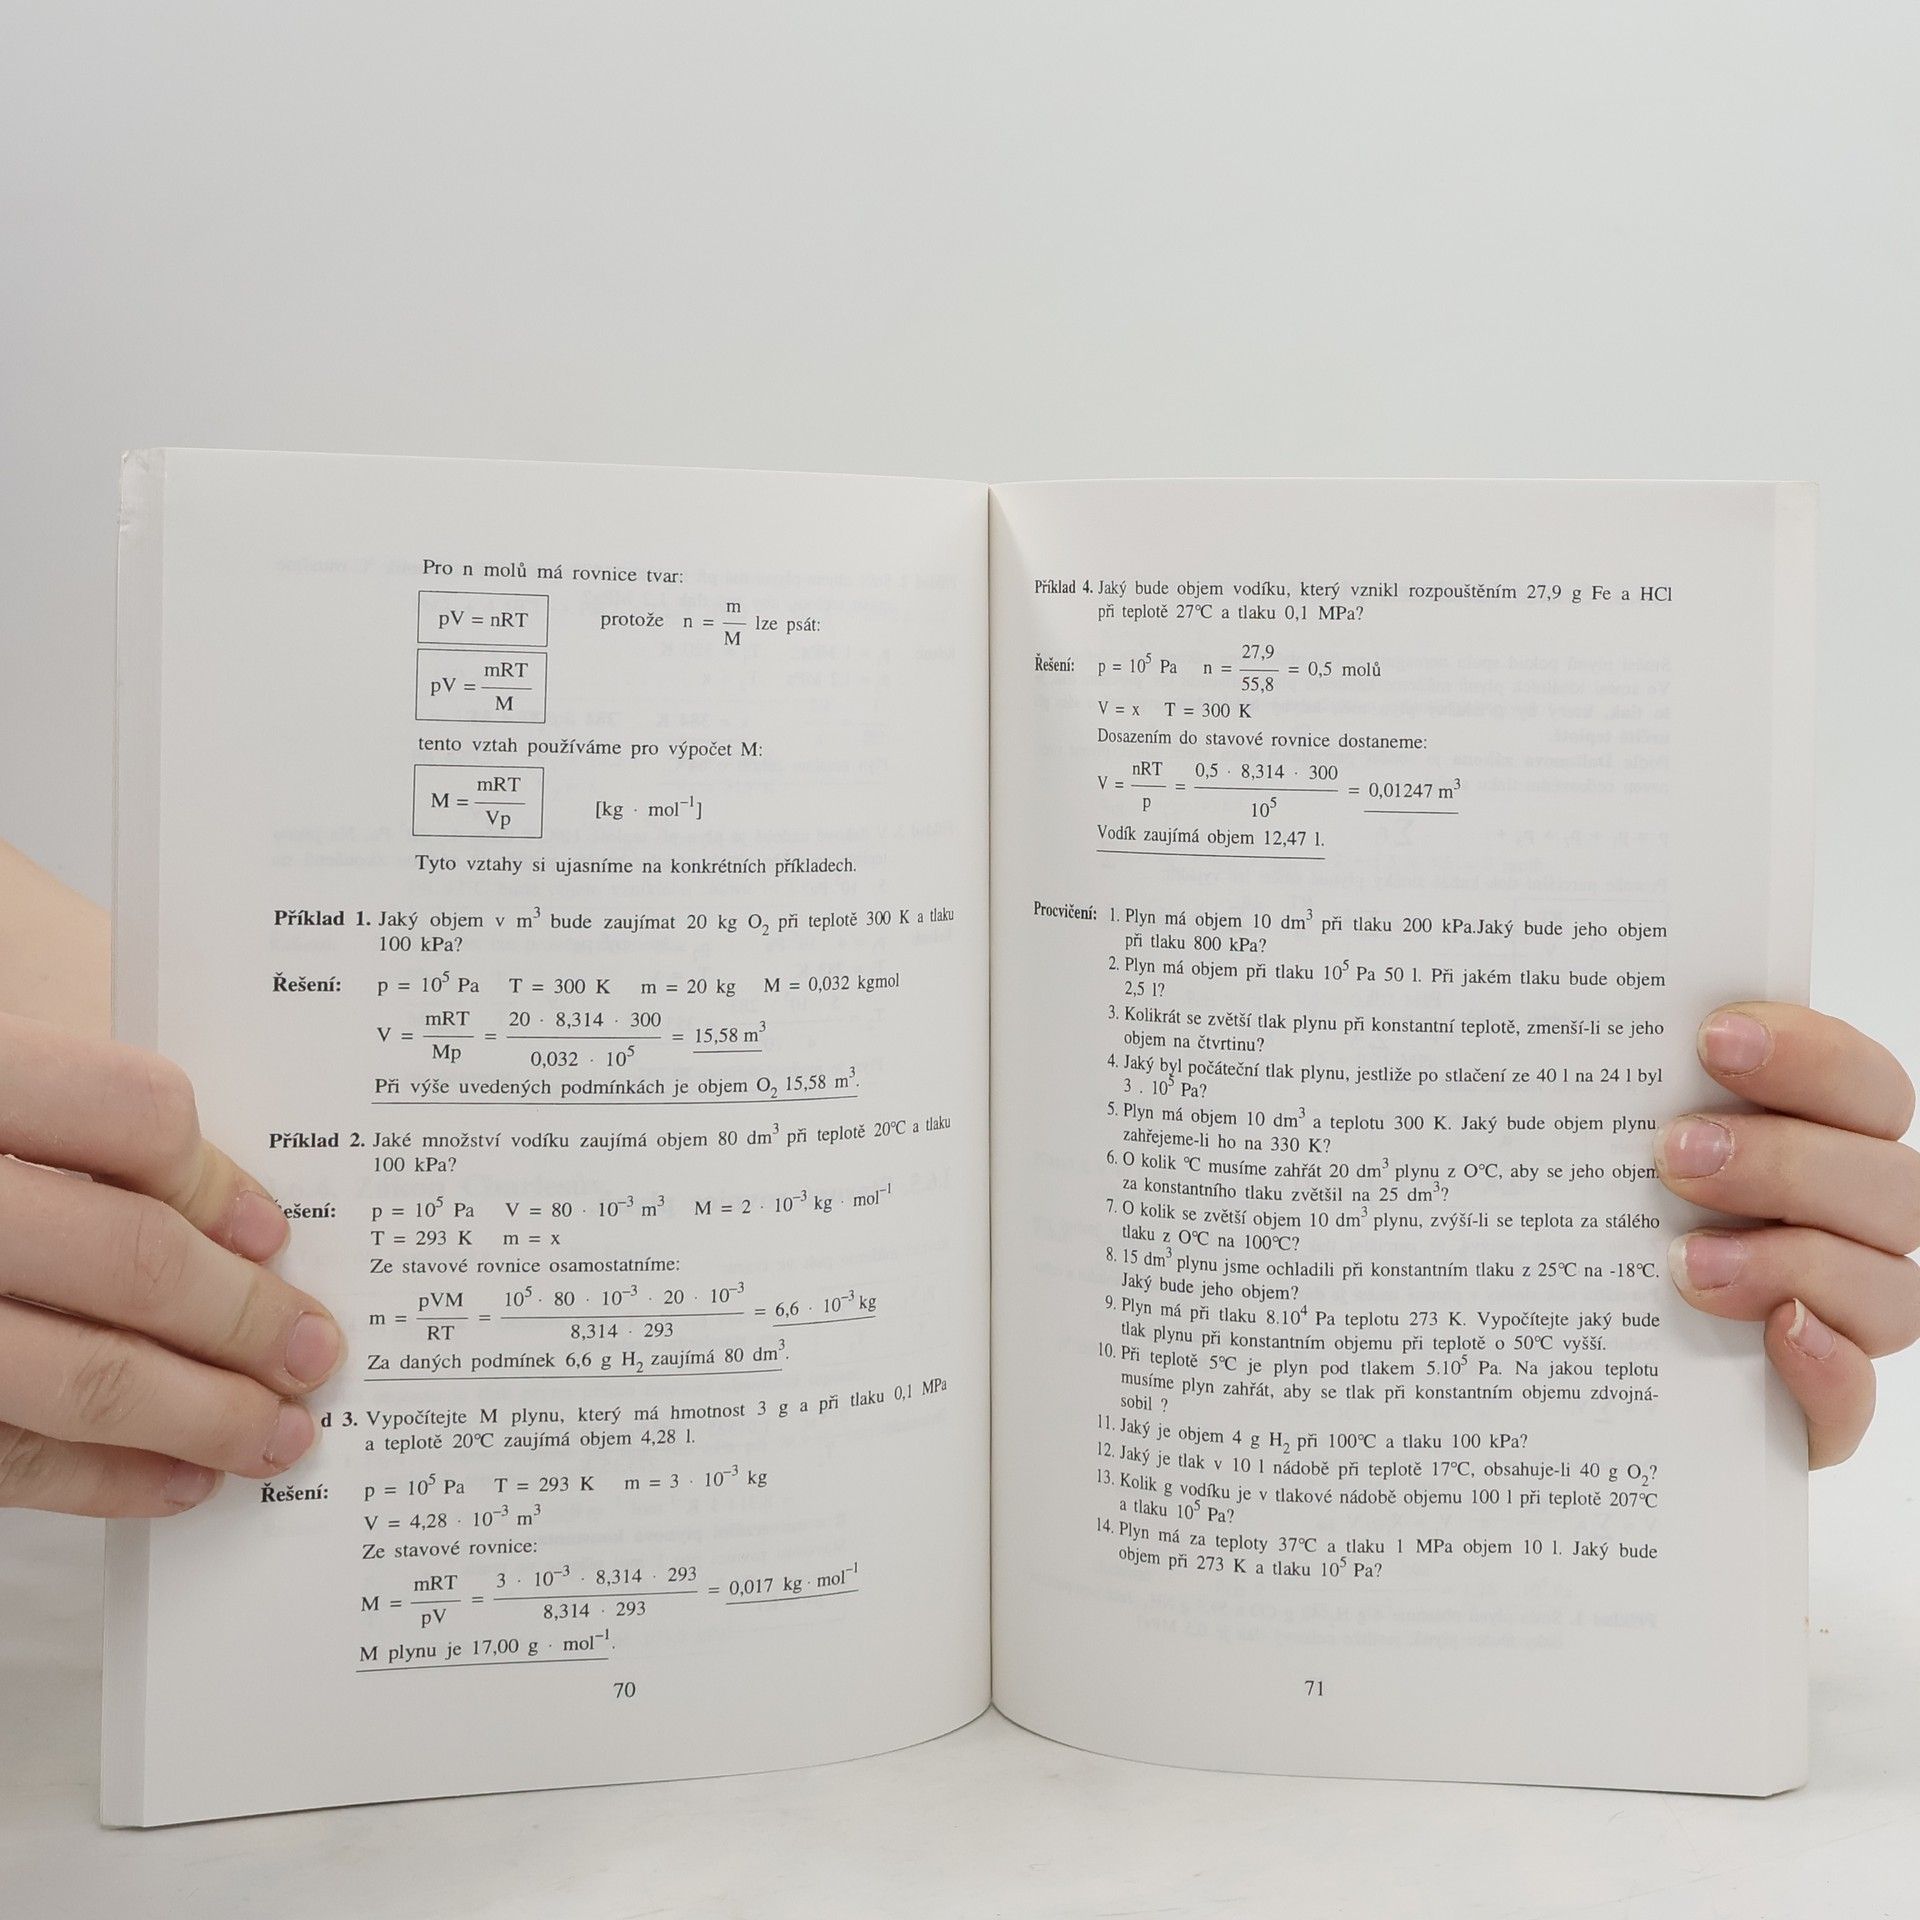 Pro n molů má rovnice tvar:
pV = nRT protože n = m/M lze psát:
pV = mRT/M
tento vztah používáme pro výpočet M:
M = mRT/Vp [kg · mol⁻¹]
Tyto vztahy si ujasníme na konkrétních příkladech.
Příklad 1. Jaký objem v m³ bude zaujímat 20 kg O₂ při teplotě 300 K a tlaku
100 kPa?
Řešení: p = 10⁵ Pa T = 300 K m = 20 kg M = 0,032 kgmol
V = mRT/Mp = 20 · 8,314 · 300/0,032 · 10⁵ = 15,58 m³
Při výše uvedených podmínkách je objem O₂ 15,58 m³.
Příklad 2. Jaké množství vodíku zaujímá objem 80 dm³ při teplotě 20°C a tlaku
100 kPa?
ešení: p = 10⁵ Pa V = 80 · 10⁻³ m³ M = 2 · 10⁻³ kg · mol⁻¹
T = 293 K m = x
Ze stavové rovnice osamostatníme:
m = pVM/RT = 10⁵ · 80 · 10⁻³ · 20 · 10⁻³/8,314 · 293 = 6,6 · 10⁻³ kg
Za daných podmínek 6,6 g H₂ zaujímá 80 dm³.
d 3. Vypočítejte M plynu, který má hmotnost 3 g a při tlaku 0,1 MPa
a teplotě 20°C zaujímá objem 4,28 l.
Řešení: p = 10⁵ Pa T = 293 K m = 3 · 10⁻³ kg
V = 4,28 · 10⁻³ m³
Ze stavové rovnice:
M = mRT/pV = 3 · 10⁻³ · 8,314 · 293/8,314 · 293 = 0,017 kg · mol⁻¹
M plynu je 17,00 g · mol⁻¹.
70
Příklad 4. Jaký bude objem vodíku, který vznikl rozpouštěním 27,9 g Fe a HCl
při teplotě 27°C a tlaku 0,1 MPa?
Řešení: p = 10⁵ Pa n = 27,9/55,8 = 0,5 molů
V = x T = 300 K
Dosazením do stavové rovnice dostaneme:
V = nRT/p = 0,5 · 8,314 · 300/10⁵ = 0,01247 m³
Vodík zaujímá objem 12,47 l.
Procvičení: 1. Plyn má objem 10 dm³ při tlaku 200 kPa.Jaký bude jeho objem
při tlaku 800 kPa?
2. Plyn má objem při tlaku 10⁵ Pa 50 l. Při jakém tlaku bude objem
2,5 l?
3. Kolikrát se zvětší tlak plynu při konstantní teplotě, zmenší-li se jeho
objem na čtvrtinu?
4. Jaký byl počáteční tlak plynu, jestliže po stlačení ze 40 l na 24 l byl
3 . 10⁵ Pa?
5. Plyn má objem 10 dm³ a teplotu 300 K. Jaký bude objem plynu,
zahřejeme-li ho na 330 K?
6. O kolik °C musíme zahřát 20 dm³ plynu z O°C, aby se jeho objem
za konstantního tlaku zvětšil na 25 dm³?
7. O kolik se zvětší objem 10 dm³ plynu, zvýší-li se teplota za stálého
tlaku z O°C na 100°C?
8. 15 dm³ plynu jsme ochladili při konstantním tlaku z 25°C na -18°C.
Jaký bude jeho objem?
9. Plyn má při tlaku 8.10⁴ Pa teplotu 273 K. Vypočítejte jaký bude
tlak plynu při konstantním objemu při teplotě o 50°C vyšší.
10. Při teplotě 5°C je plyn pod tlakem 5.10⁵ Pa. Na jakou teplotu
musíme plyn zahřát, aby se tlak při konstantním objemu zdvojná-
sobil ?
11. Jaký je objem 4 g H₂ při 100°C a tlaku 100 kPa?
12. Jaký je tlak v 10 l nádobě při teplotě 17°C, obsahuje-li 40 g O₂?
13. Kolik g vodíku je v tlakové nádobě objemu 100 l při teplotě 207°C
a tlaku 10⁵ Pa?
14. Plyn má za teploty 37°C a tlaku 1 MPa objem 10 l. Jaký bude
objem při 273 K a tlaku 10⁵ Pa?
71